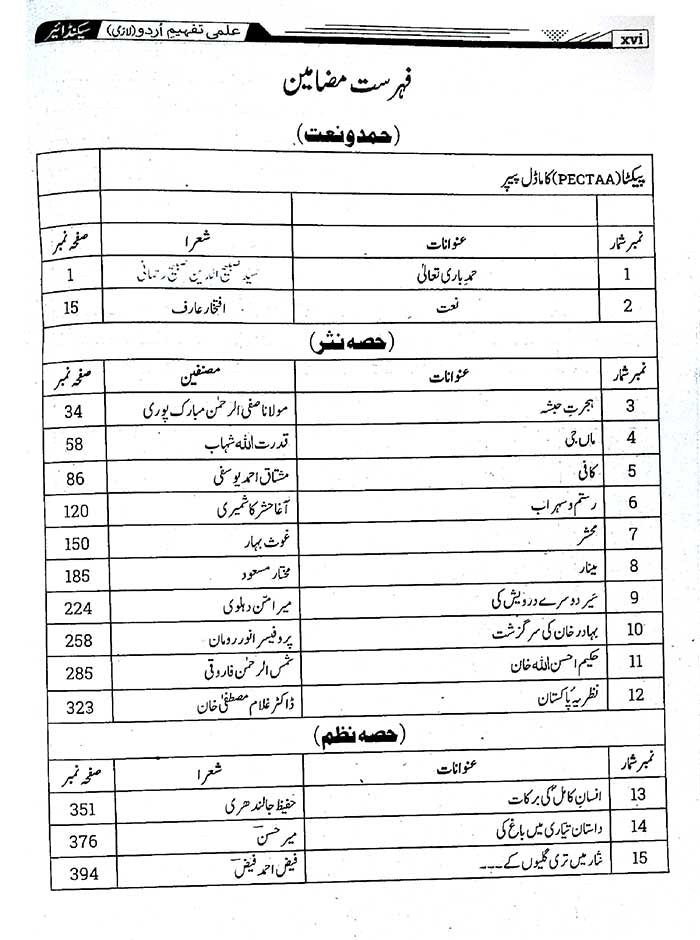 xvi علمی تفہیم اُردو (لازمی) سیکنڈ ائیر
فہرست مضامین
(حمد و نعت)
پیکٹا (PECTAA) کا ماڈل پیپر
نمبر شمار عنوانات شعرا صفحہ نمبر
1 حمدِ باری تعالیٰ سید صبیح الدین صبیح رحمانی 1
2 نعت افتخار عارف 15
(حصہ نثر)
نمبر شمار عنوانات مصنفین صفحہ نمبر
3 ہجرتِ حبشہ مولانا صفی الرحمٰن مبارک پوری 34
4 ماں جی قدرت اللہ شہاب 58
5 کافی مشتاق احمد یوسفی 86
6 رستم و سہراب آغا حشر کاشمیری 120
7 محشر غوث بہار 150
8 مینار مختار مسعود 185
9 سَیر دوسرے درویش کی میر امن دہلوی 224
10 بہادر خان کی سرگزشت پروفیسر انور رومان 258
11 حکیم احسن اللہ خان شمس الرحمٰن فاروقی 285
12 نظریۂ پاکستان ڈاکٹر غلام مصطفیٰ خان 323
(حصہ نظم)
نمبر شمار عنوانات شعرا صفحہ نمبر
13 انسانِ کامل کی برکات حفیظ جالندھری 351
14 داستان تیاری میں باغ کی میر حسنؔ 376
15 نثار میں تری گلیوں کے ۔۔۔ فیض احمد فیضؔ 394